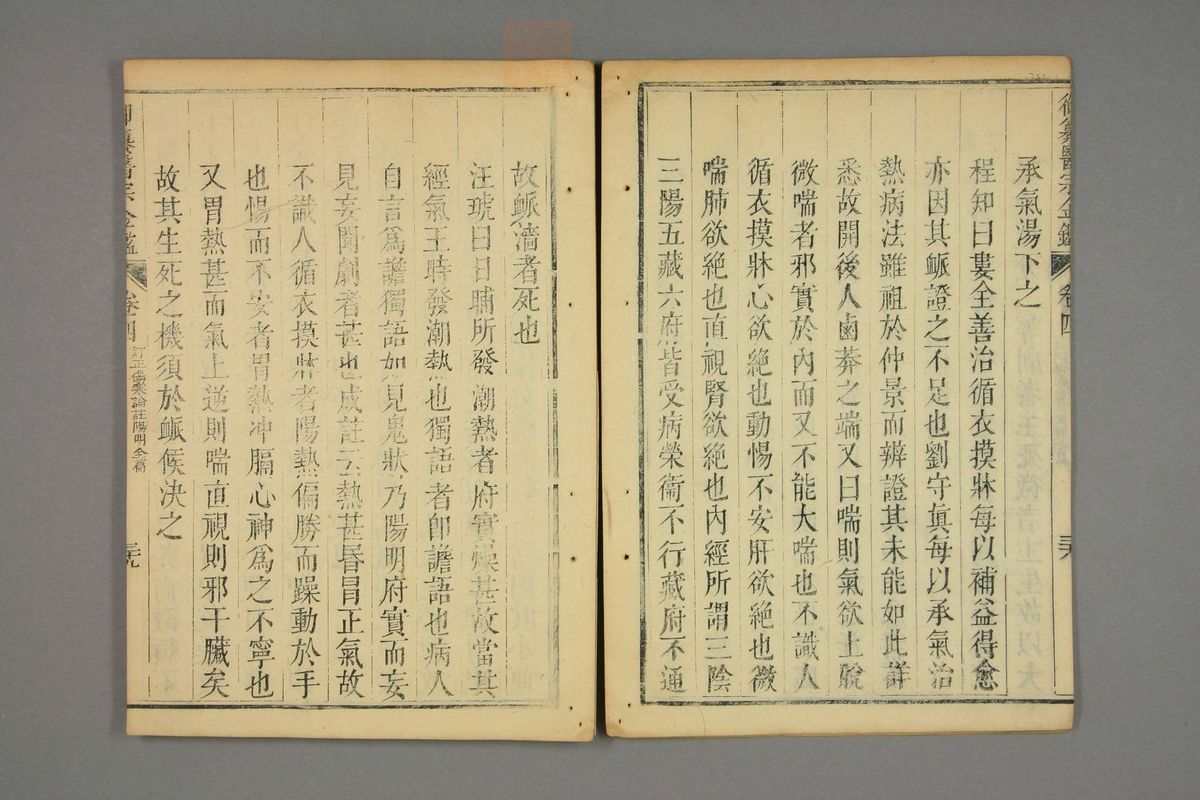 御纂醫宗金鑑 卷四 三六
承氣湯下之
程知曰婁全善治循衣摸牀每以補益得愈
亦因其脈證之不足也劉守眞每以承氣治
熱病法雖祖於仲景而辨證其未能如此詳
悉故開後人鹵莽之端又曰喘則氣欲上脫
微喘者邪實於內而又不能大喘也不識人
循衣摸牀心欲絕也動惕不安肝欲絕也微
喘肺欲絕也直視腎欲絕也內經所謂三陰
三陽五藏六府皆受病榮衞不行藏府不通
故脈濇者死也
汪琥曰日晡所發潮熱者府實燥甚故當其
經氣王時發潮熱也獨語者卽譫語也病人
自言爲譫獨語如見鬼狀乃陽明府實而妄
見妄聞劇者甚也成註云熱甚昬冒正氣故
不識人循衣摸牀者陽熱偏勝而躁動於手
也惕而不安者胃熱冲膈心神爲之不寧也
又胃熱甚而氣上逆則喘直視則邪干臟矣
故其生死之機須於脈候決之
御纂醫宗金鑑 卷四 訂正傷寒論註陽明全篇 三九